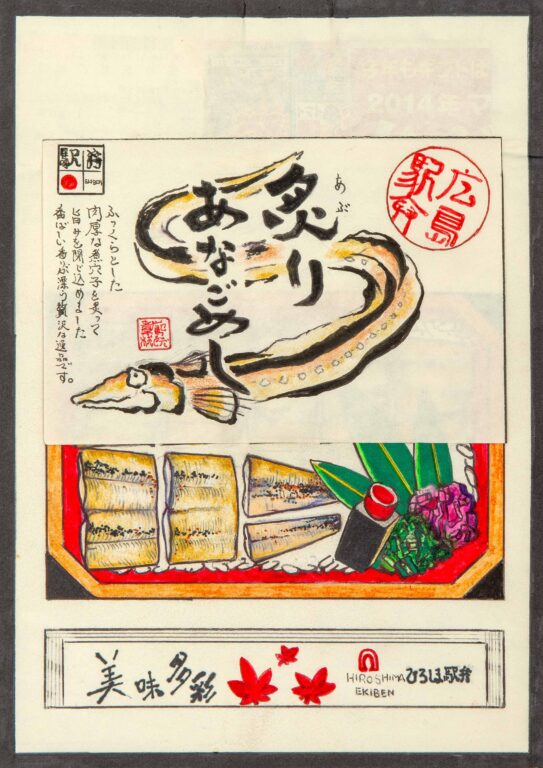 駅弁
EKIBEN
広島
駅弁
あぶ
炙り
あなごめし
ふっくらとした
肉厚な煮穴子を炙って
旨みを閉じ込めました
香ばしい香りが漂う贅沢な逸品です。
美味多彩
HIROSHIMA
EKIBEN
ひろしま駅弁